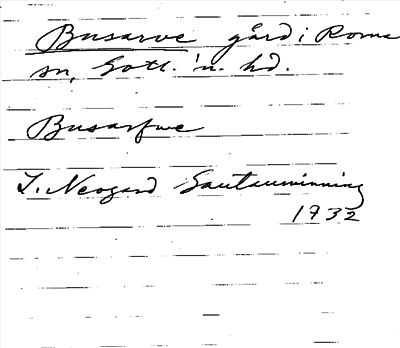 Busarve gård i Roma
sn, Gotl. n. hd.
Busarfwe
J. Neogard Gautauminning
1732